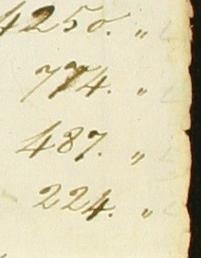 4250. "
774. "
487. "
224. "